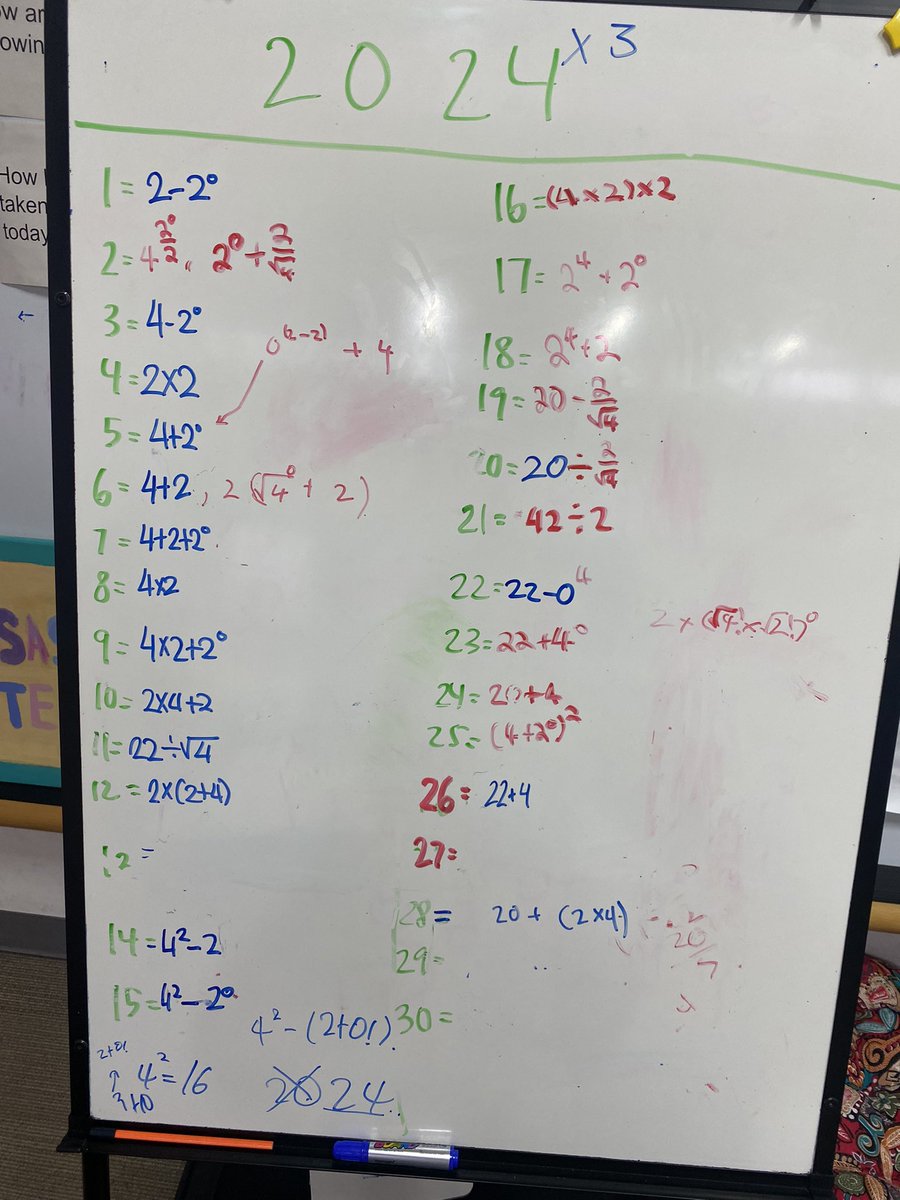 ow ar
owin
How
taken
today
2024^x3
1 = 2-2⁰
2 = 4^(2⁰/2), 2⁰ + 2/√4
3 = 4-2⁰
0^(2-2) + 4
4 = 2×2
5 = 4+2⁰
6 = 4+2, 2(√4⁰ + 2)
7 = 4+2+2⁰
8 = 4×2
9 = 4×2+2⁰
10 = 2×4+2
11 = 22÷√4
12 = 2×(2+4)
=
14 = 4²-2
15 = 4²-2⁰
4²-(2+0!)
2+0!
4² = 16
2024
16 = (4×2)×2
17 = 2⁴+2⁰
18 = 2⁴+2
19 = 20-2/√4
20 = 20÷2/√4
21 = 42÷2
22 = 22-0⁴
23 = 22+4⁰
2×(√4!×√2!)⁰
24 = 20+4
25 = (4+2⁰)²
26 = 22+4
27 =
28 = 20 + (2×4)
20/
29 =
30 =
SAS
TE